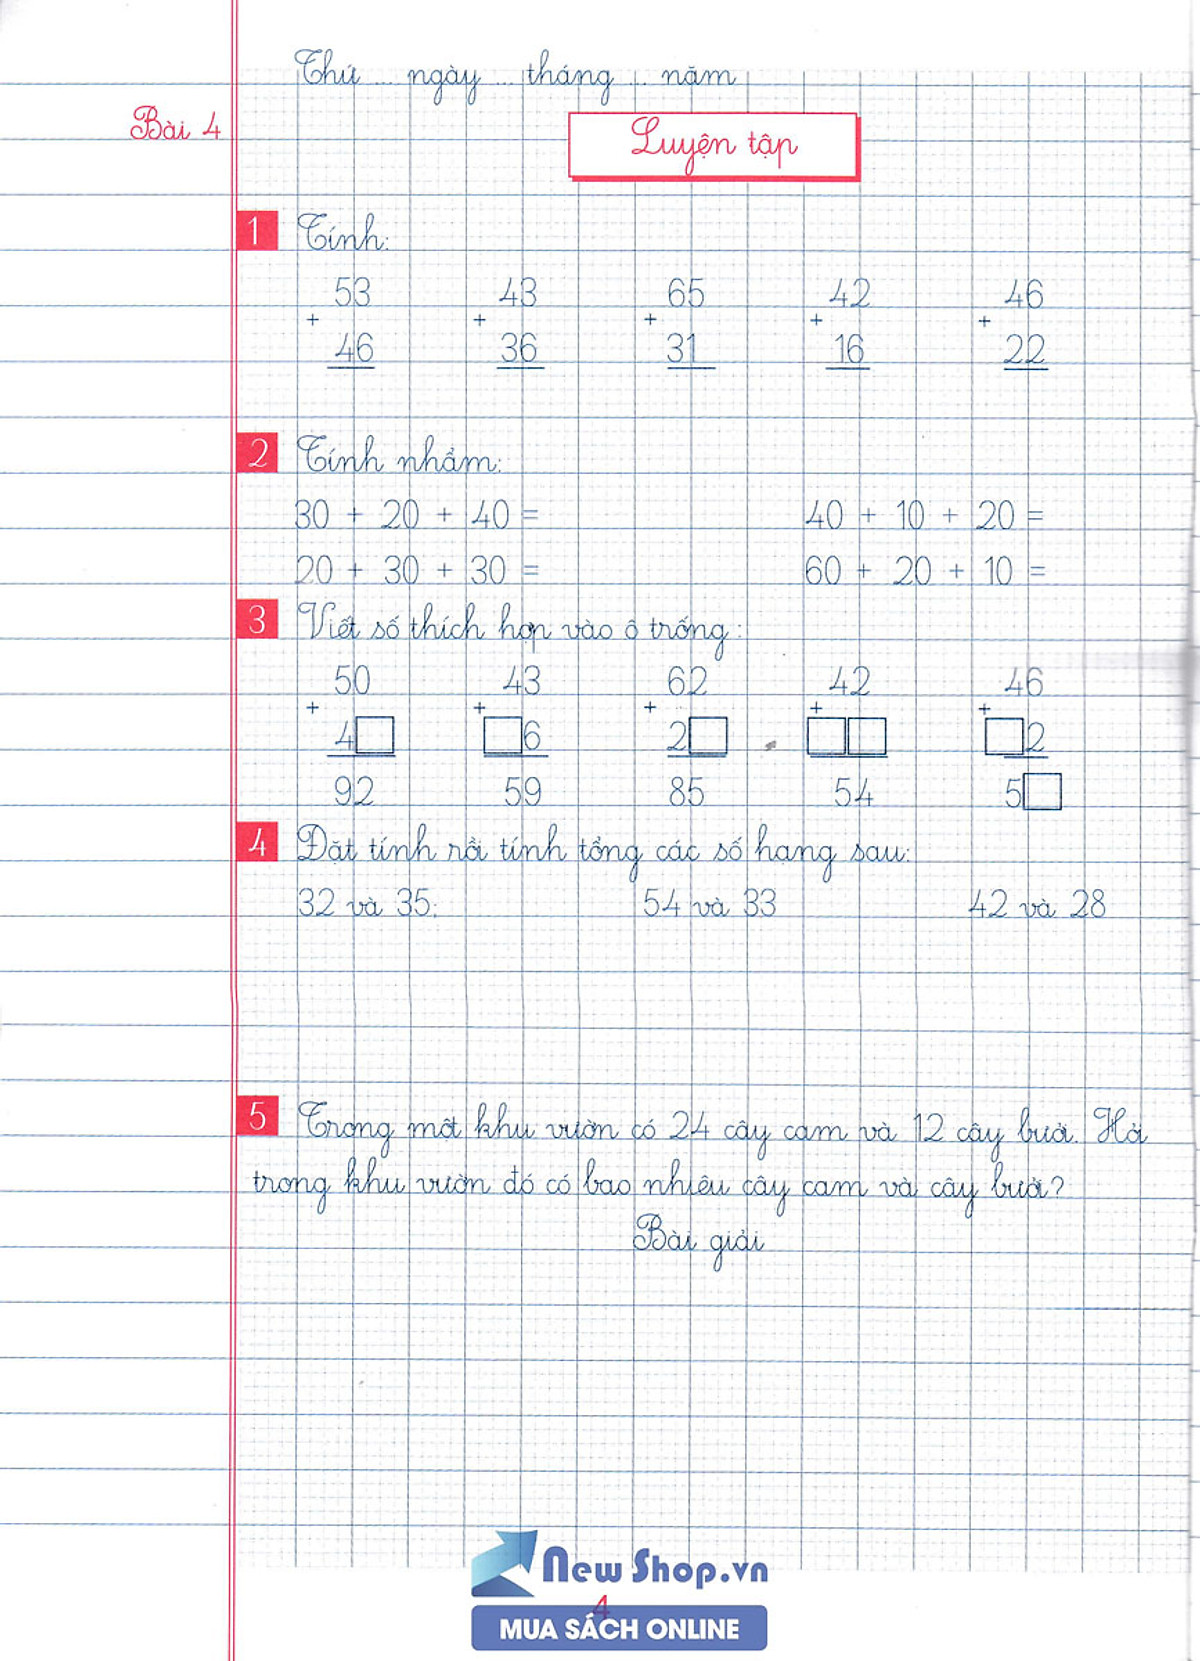 Thứ ... ngày ... tháng ... năm
Bài 4
Luyện tập
1 Tính:
53 43 65 42 46
+ + + + +
46 36 31 16 22
2 Tính nhẩm:
30 + 20 + 40 = 40 + 10 + 20 =
20 + 30 + 30 = 60 + 20 + 10 =
3 Viết số thích hợp vào ô trống:
50 43 62 42 46
+ + + + +
4□ □6 2□ □□ □2
92 59 85 54 5□
4 Đặt tính rồi tính tổng các số hạng sau:
32 và 35: 54 và 33 42 và 28
5 Trong một khu vườn có 24 cây cam và 12 cây bưởi. Hỏi
trong khu vườn đó có bao nhiêu cây cam và cây bưởi?
Bài giải
New Shop.vn
4
MUA SÁCH ONLINE